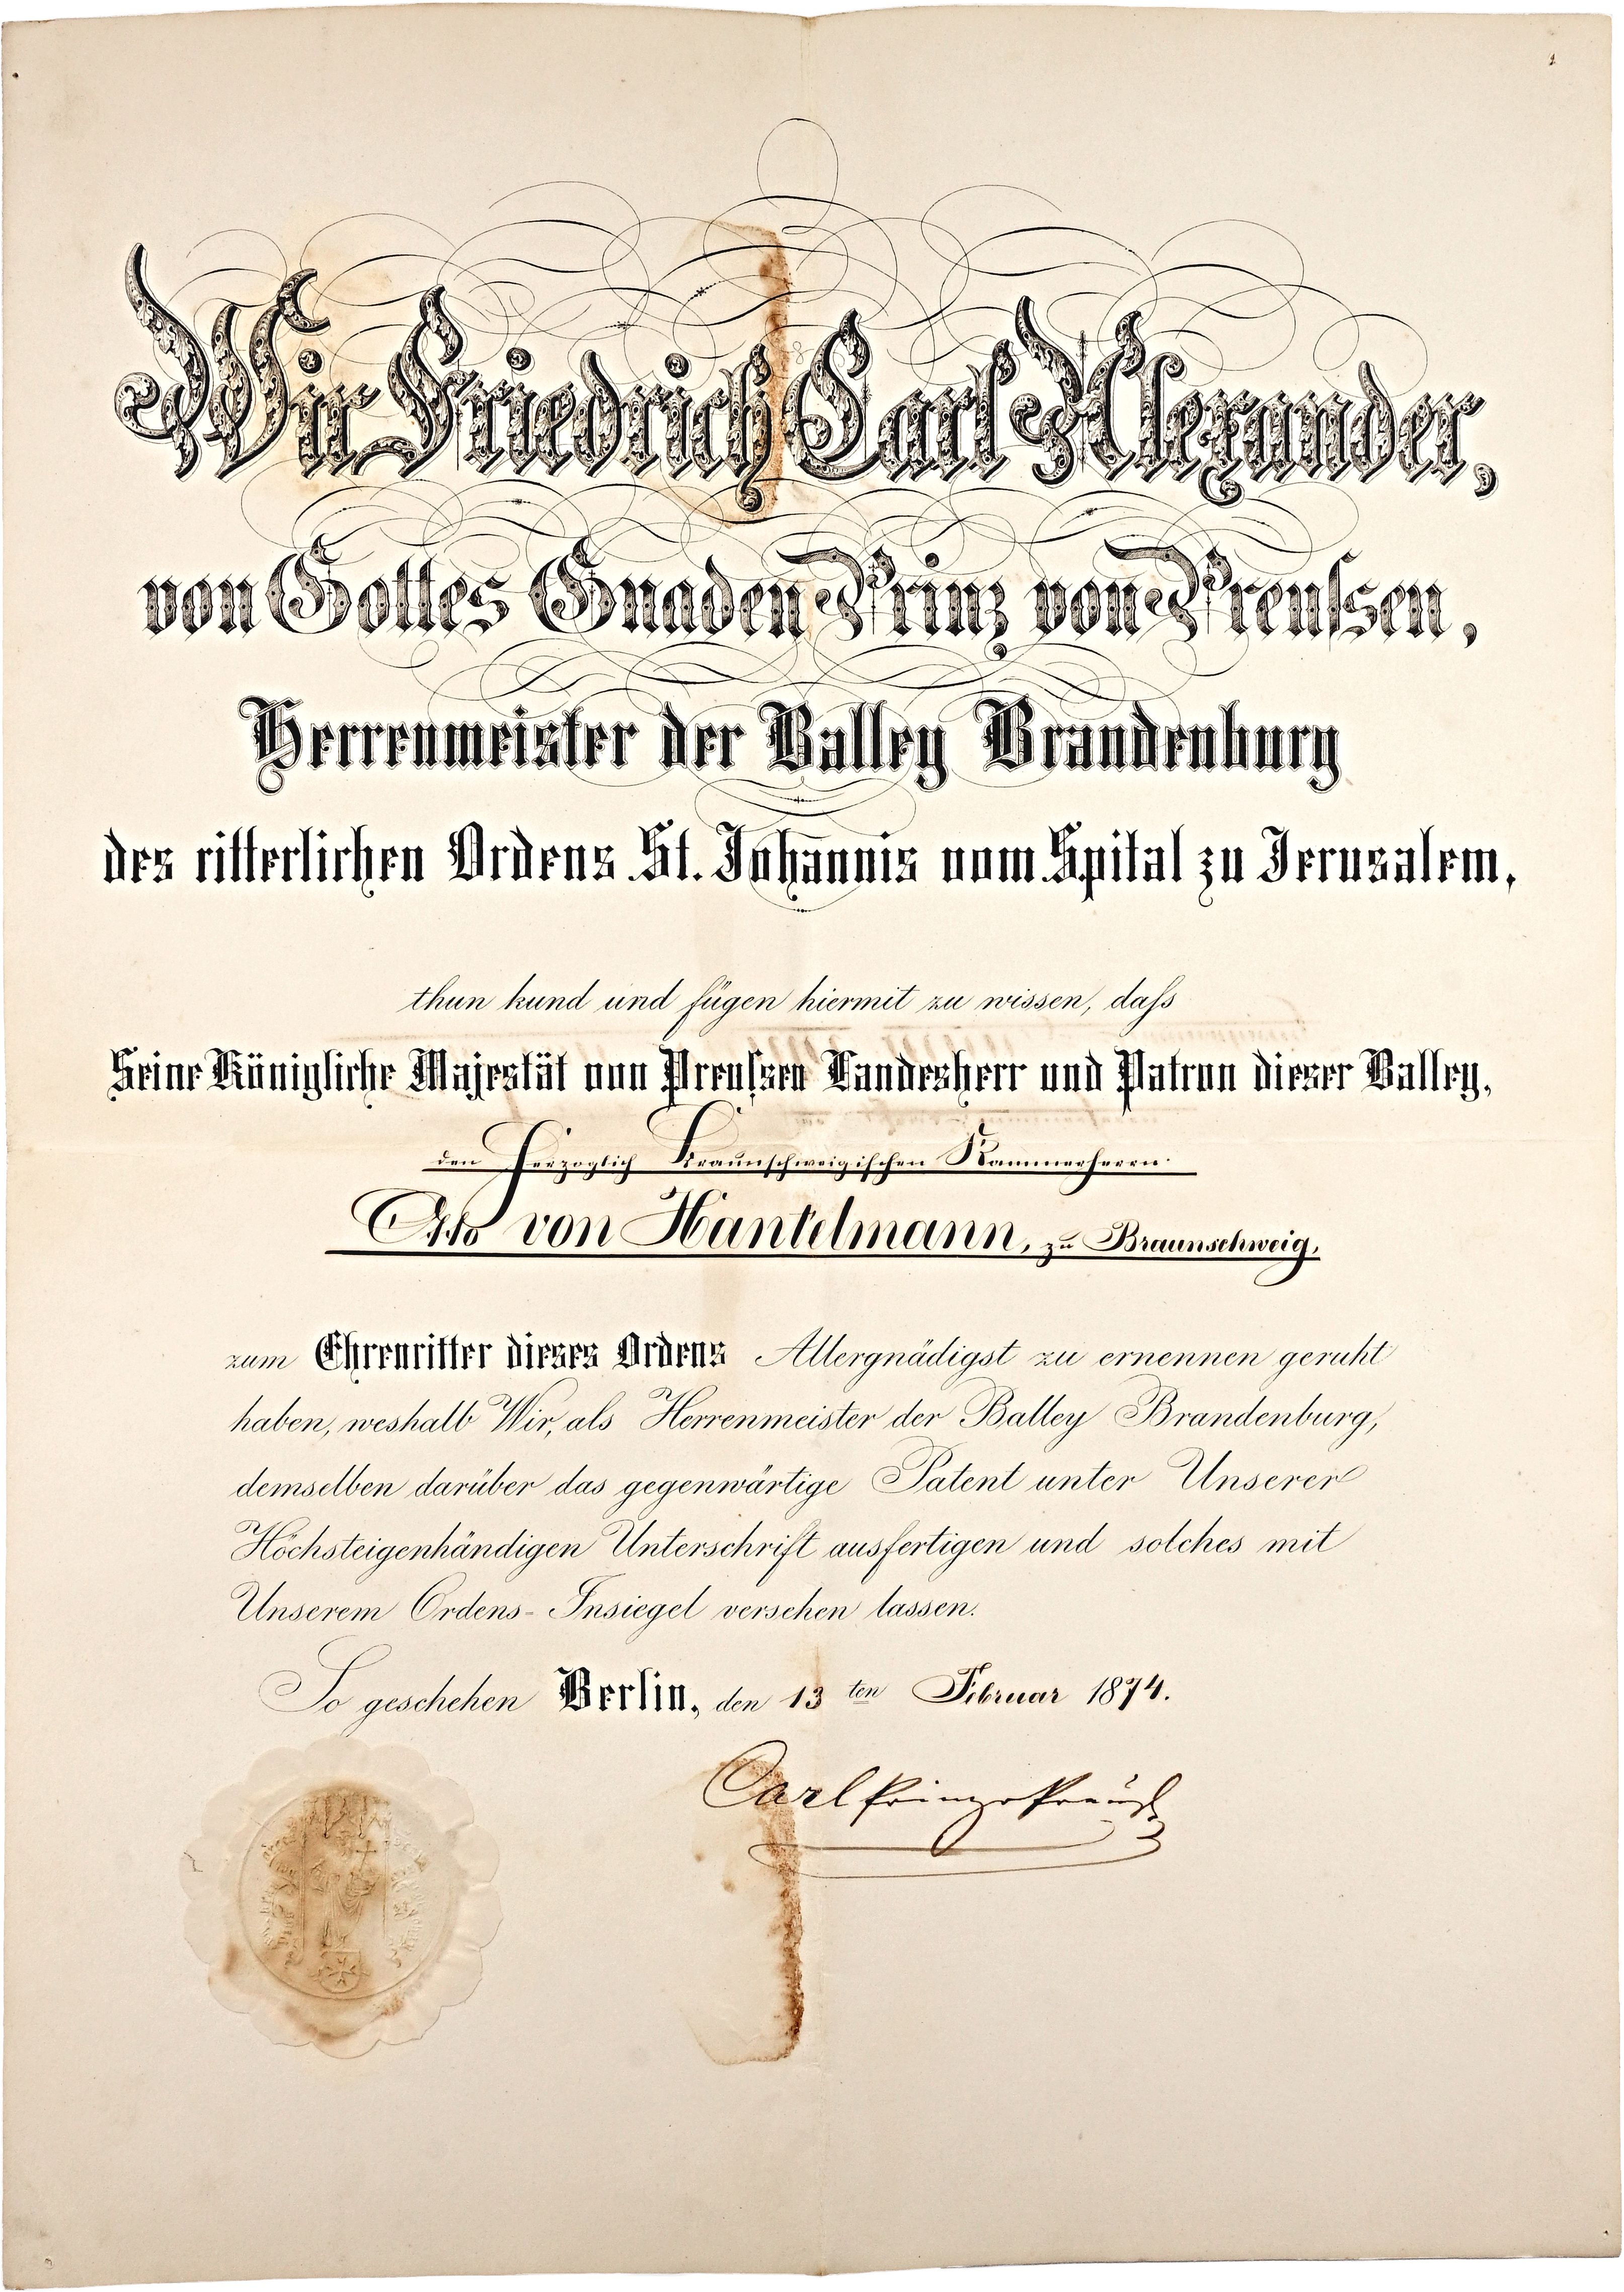 Wir Friedrich Carl Alexander,
von Gottes Gnaden Prinz von Preußen,
Herrenmeister der Balley Brandenburg
des ritterlichen Ordens St. Johannis vom Spital zu Jerusalem,
thun kund und fügen hiermit zu wissen, daß
Seine Königliche Majestät von Preußen Landesherr und Patron dieser Balley,
den Herzoglich Braunschweigischen Kammerherrn
Otto von Hantelmann, zu Braunschweig,
zum Ehrenritter dieses Ordens Allergnädigst zu ernennen geruht
haben, weshalb Wir, als Herrenmeister der Balley Brandenburg,
demselben darüber das gegenwärtige Patent unter Unserer
Höchsteigenhändigen Unterschrift ausfertigen und solches mit
Unserem Ordens-Insiegel versehen lassen.
So geschehen Berlin, den 13ten Februar 1874.
Carl Prinz v Preuß